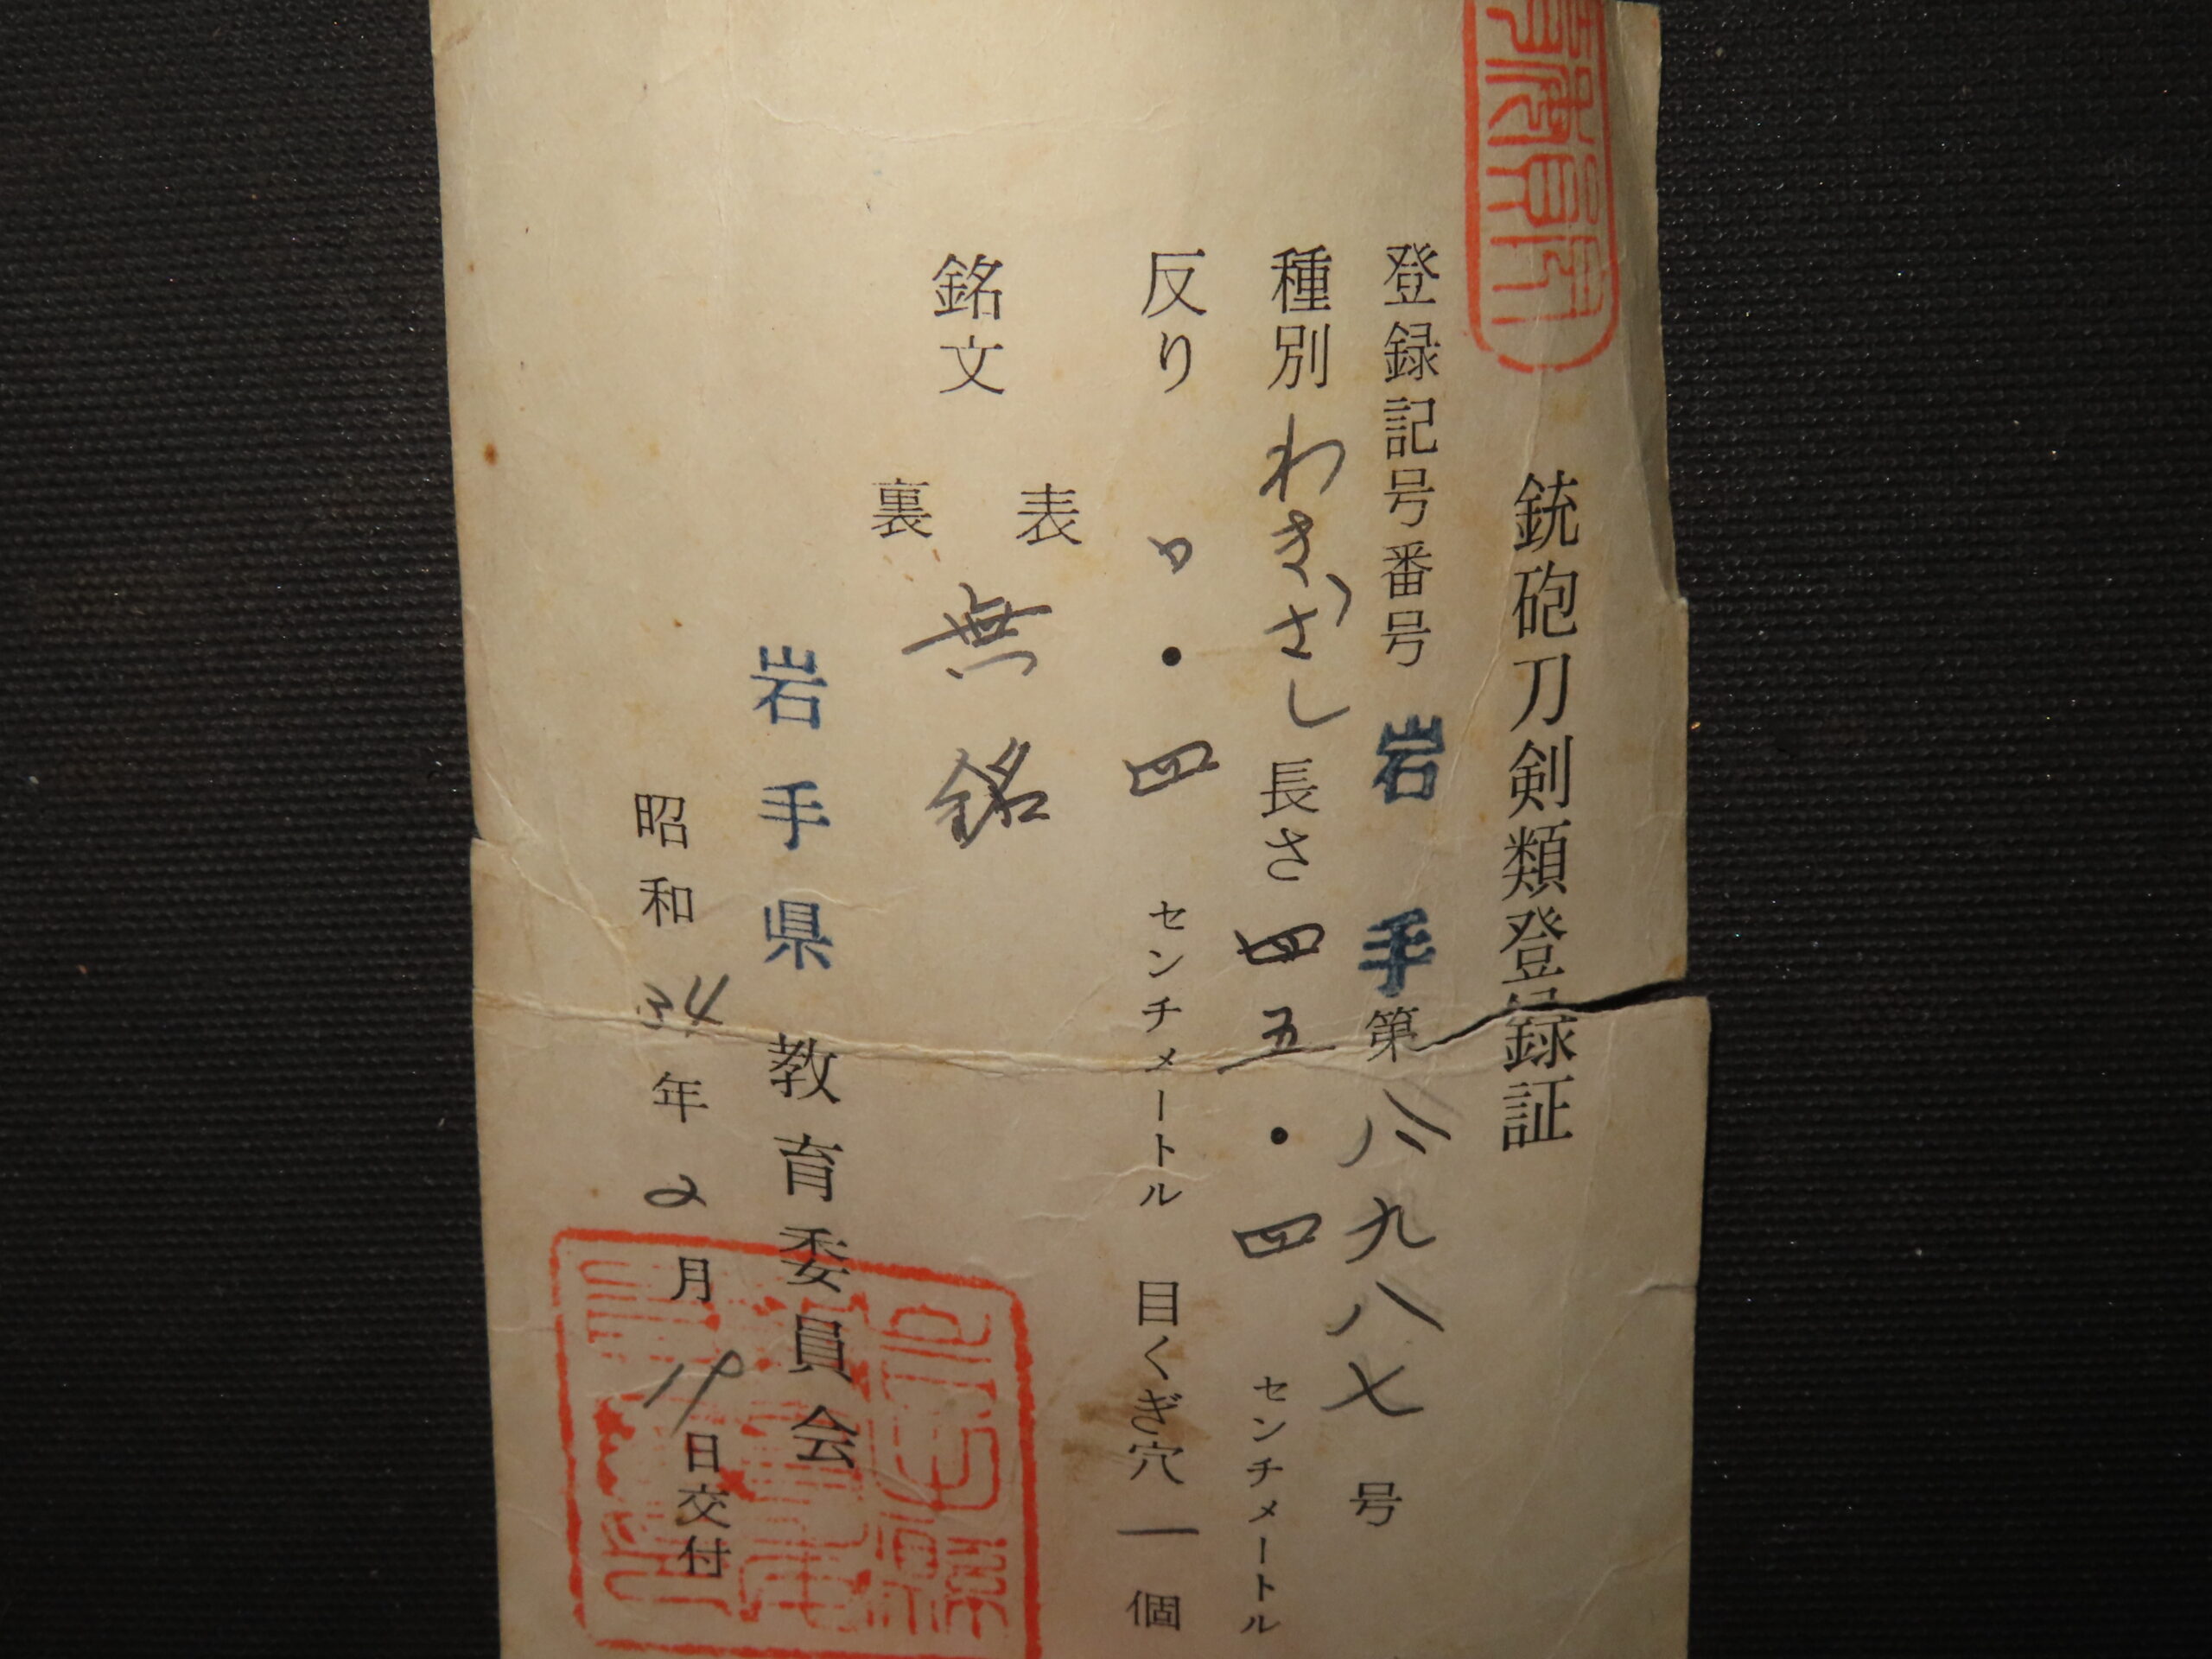 銃砲刀剣類登録証
登録記号番号 岩手第八九八七号
種別 わきざし 長さ 四五・四 センチメートル
反り 〇・四 センチメートル 目くぎ穴 一 個
銘文 表 裏 無銘
岩手県教育委員会
昭和34年2月19日交付